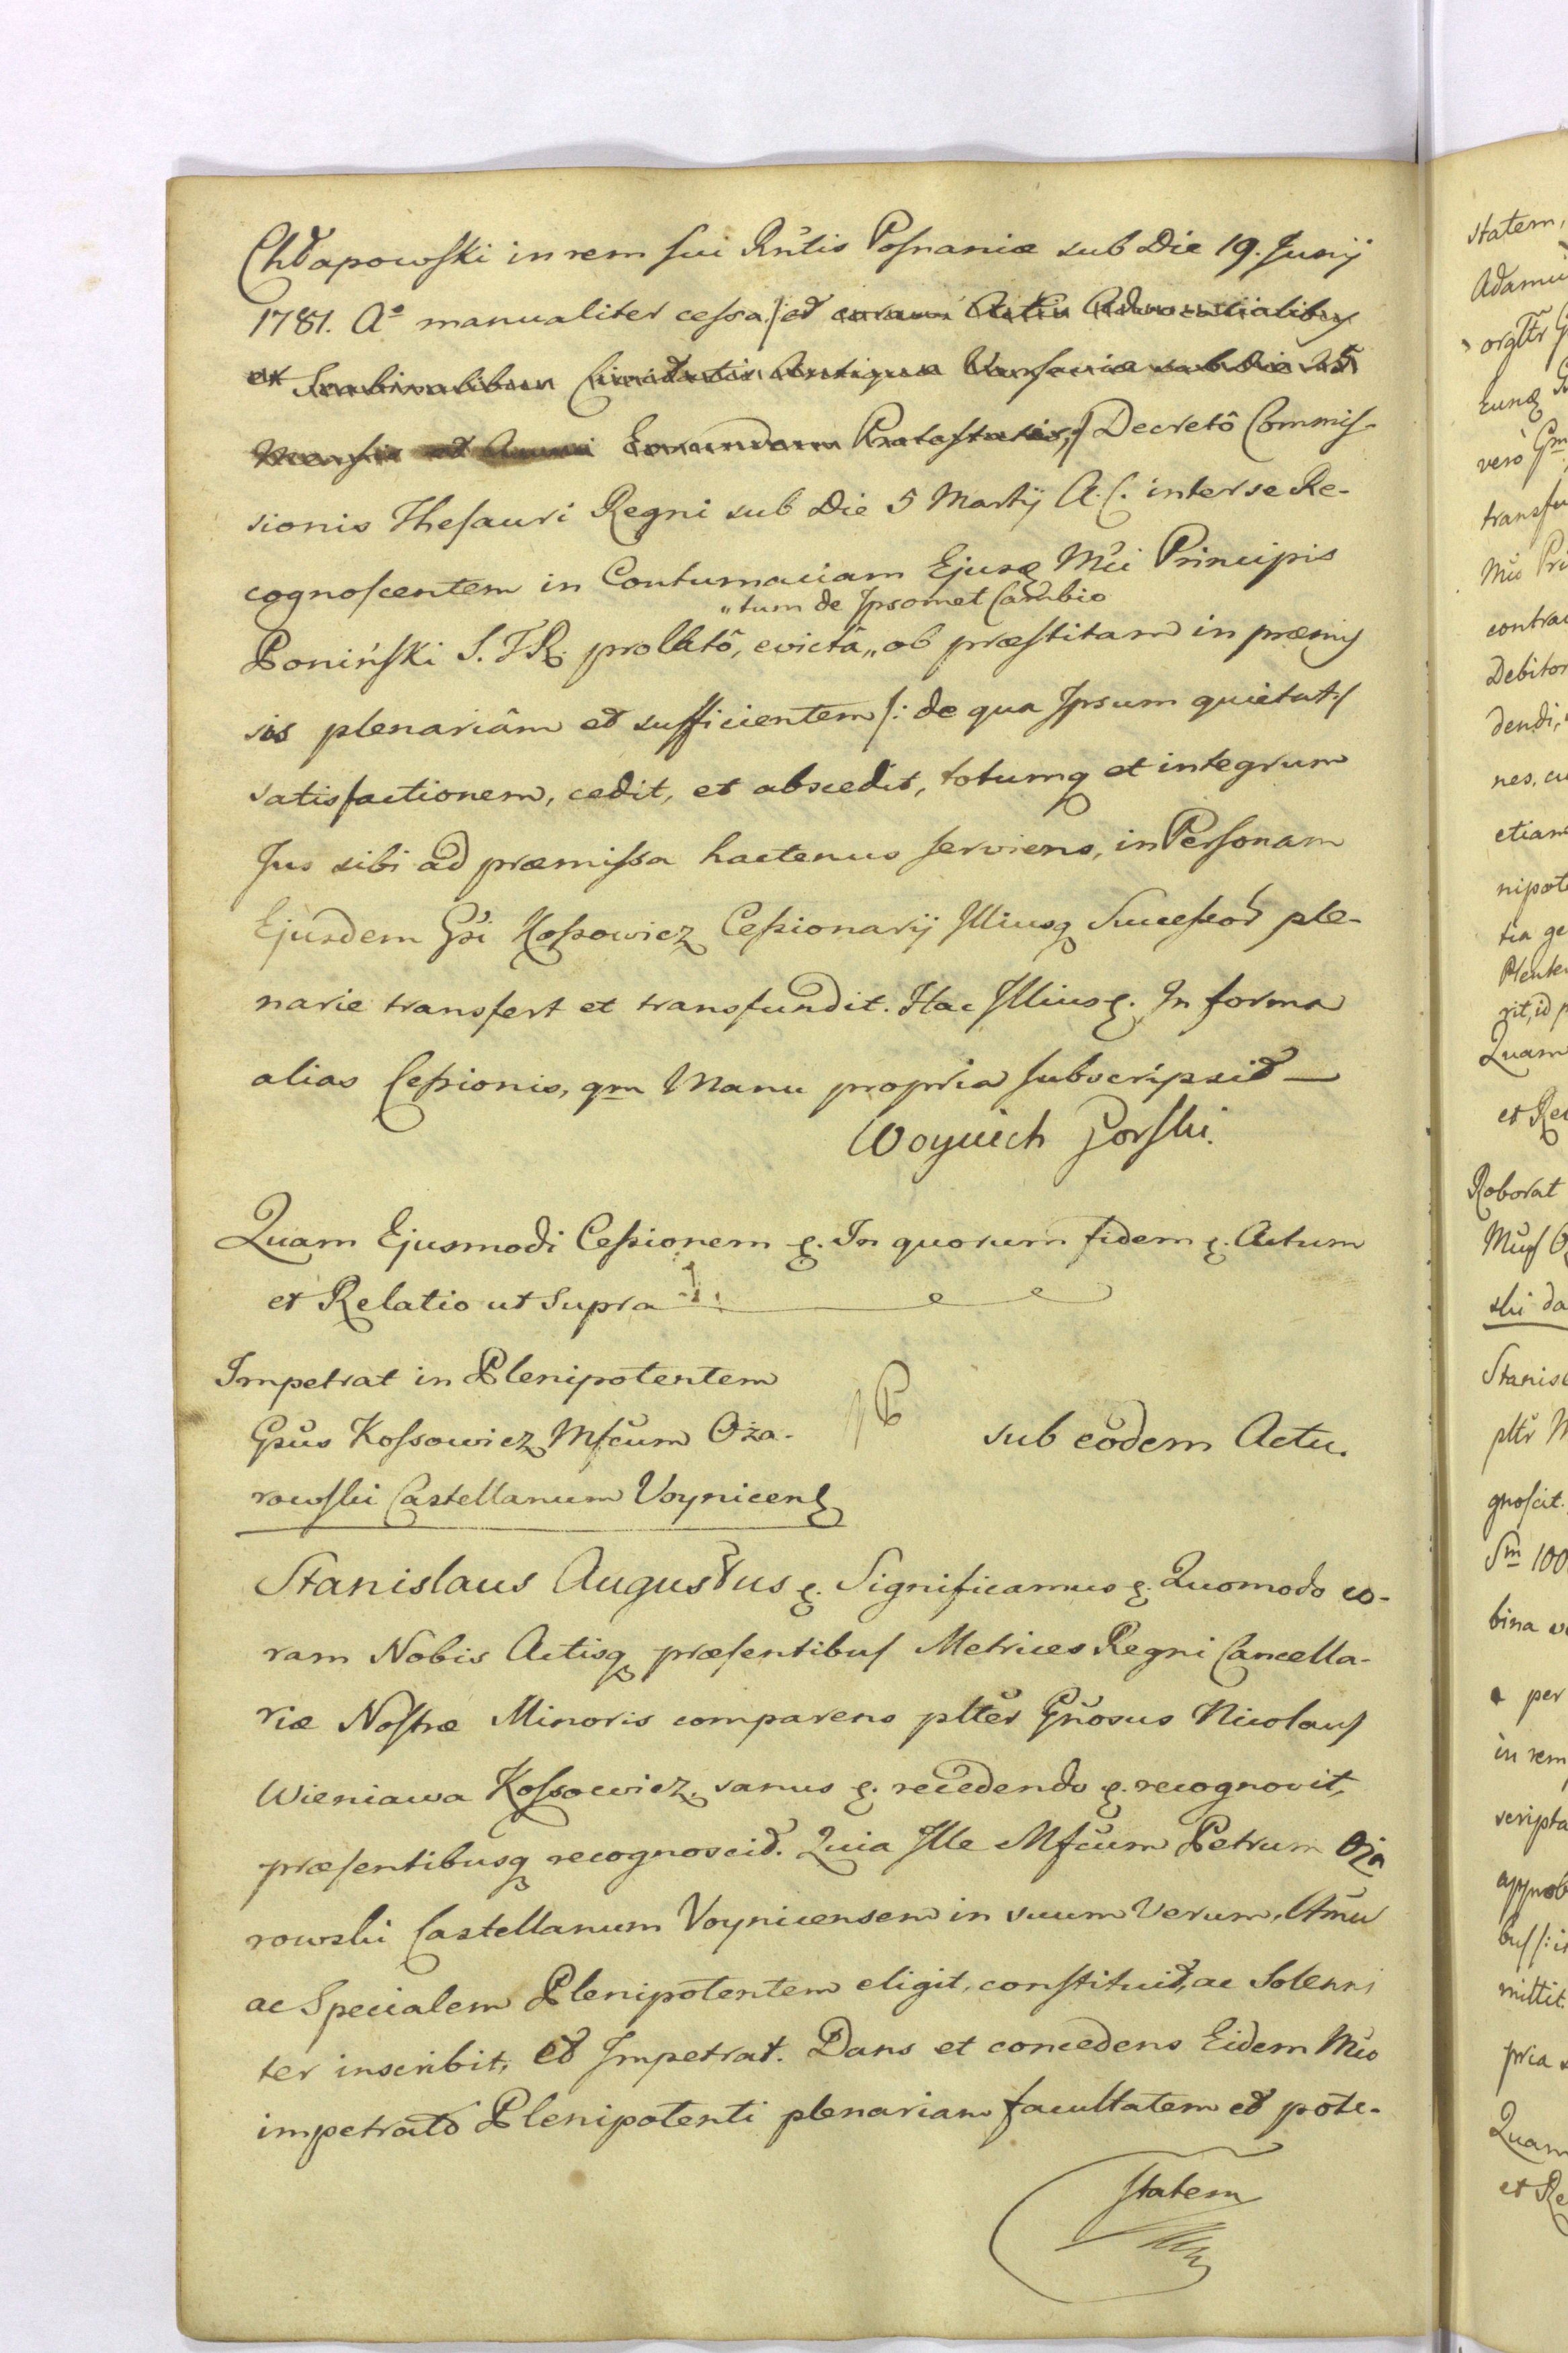 Chłapowski in rem sui Rntis Posnaniæ sub Die 19. Junij
1781. Aº manualiter cessa /: et coram Actis Advocatialibq
et Scabinalibus Civitatis Antiquæ Varsaviæ sub die 25
Mensis et Anni Eorundem :/ Decretô Commis-
sionis Thesauri Regni sub Die 5 Martij A. C. inter se Re-
cognoscentem in Contumaciam Ejusq Mci Principis
„tum de Ipsomet Cambio
Poniński S. T. R. prollatô, evictâ „ ob præstitam in præmis
sis plenariâm et sufficientem /: de qua Ipsum quietat :/
satisfactionem, cedit, et abscedit, totumq et integrum
Jus sibi ad præmissa hactenus serviens, in Personam
Ejusdem Gsi Kossowicz Cessionarij Illiusq Successor ple-
narie transfert et transfundit. Hac Illius ę. In forma
alias Cessionis, qm Manu propria subscripsit —
Woyciech Gorski.
Quam Ejusmodi Cessionem ę. In quorum fidem ę. Actum
et Relatio ut Supra
Impetrat in Plenipotentem
Gsus Kossowicz Mfcum Oża-
rowski Castellanum Voynicens
sub eôdem Actu.
Stanislaus Augustus ę. Significamus ę. Quomodo co-
ram Nobis Actisq præsentibus Metrices Regni Cancella-
riæ Nostræ Minoris comparens plter Gnosus Nicolaus
Wieniawa Kossowicz sanus ę. recedendo ę. recognovit,
præsentibusq recognoscit. Quia Ille Mfcum Petrum Oża
rowski Castellanum Voynicensem in suum Verum,
ac Specialem Plenipotentem eligit, constituit, ac Solenni
ter inscribit, et Impetrat. Dans et concedens Eidem Mco
impetrato Plenipotenti plenariam facultatem et pote-
statem